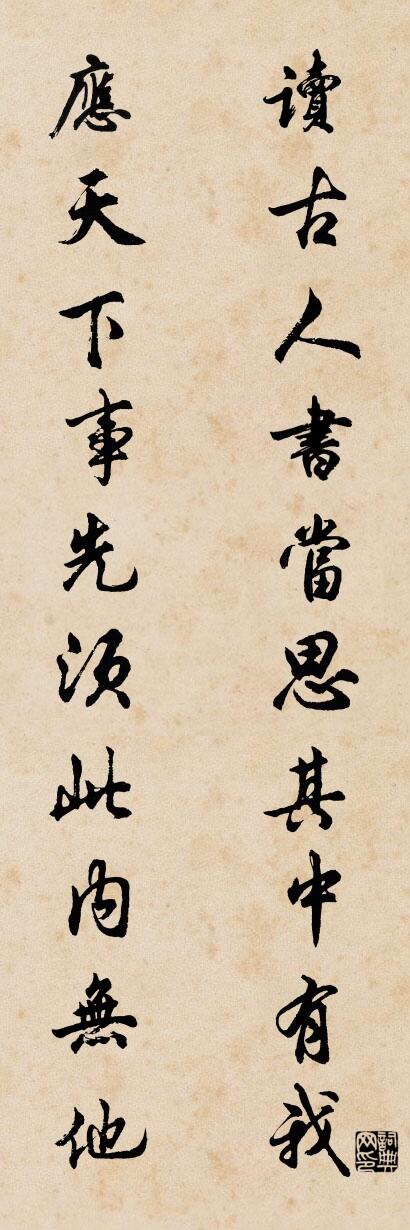 讀古人書當思其中有我
應天下事先須此內無他
詞典網印